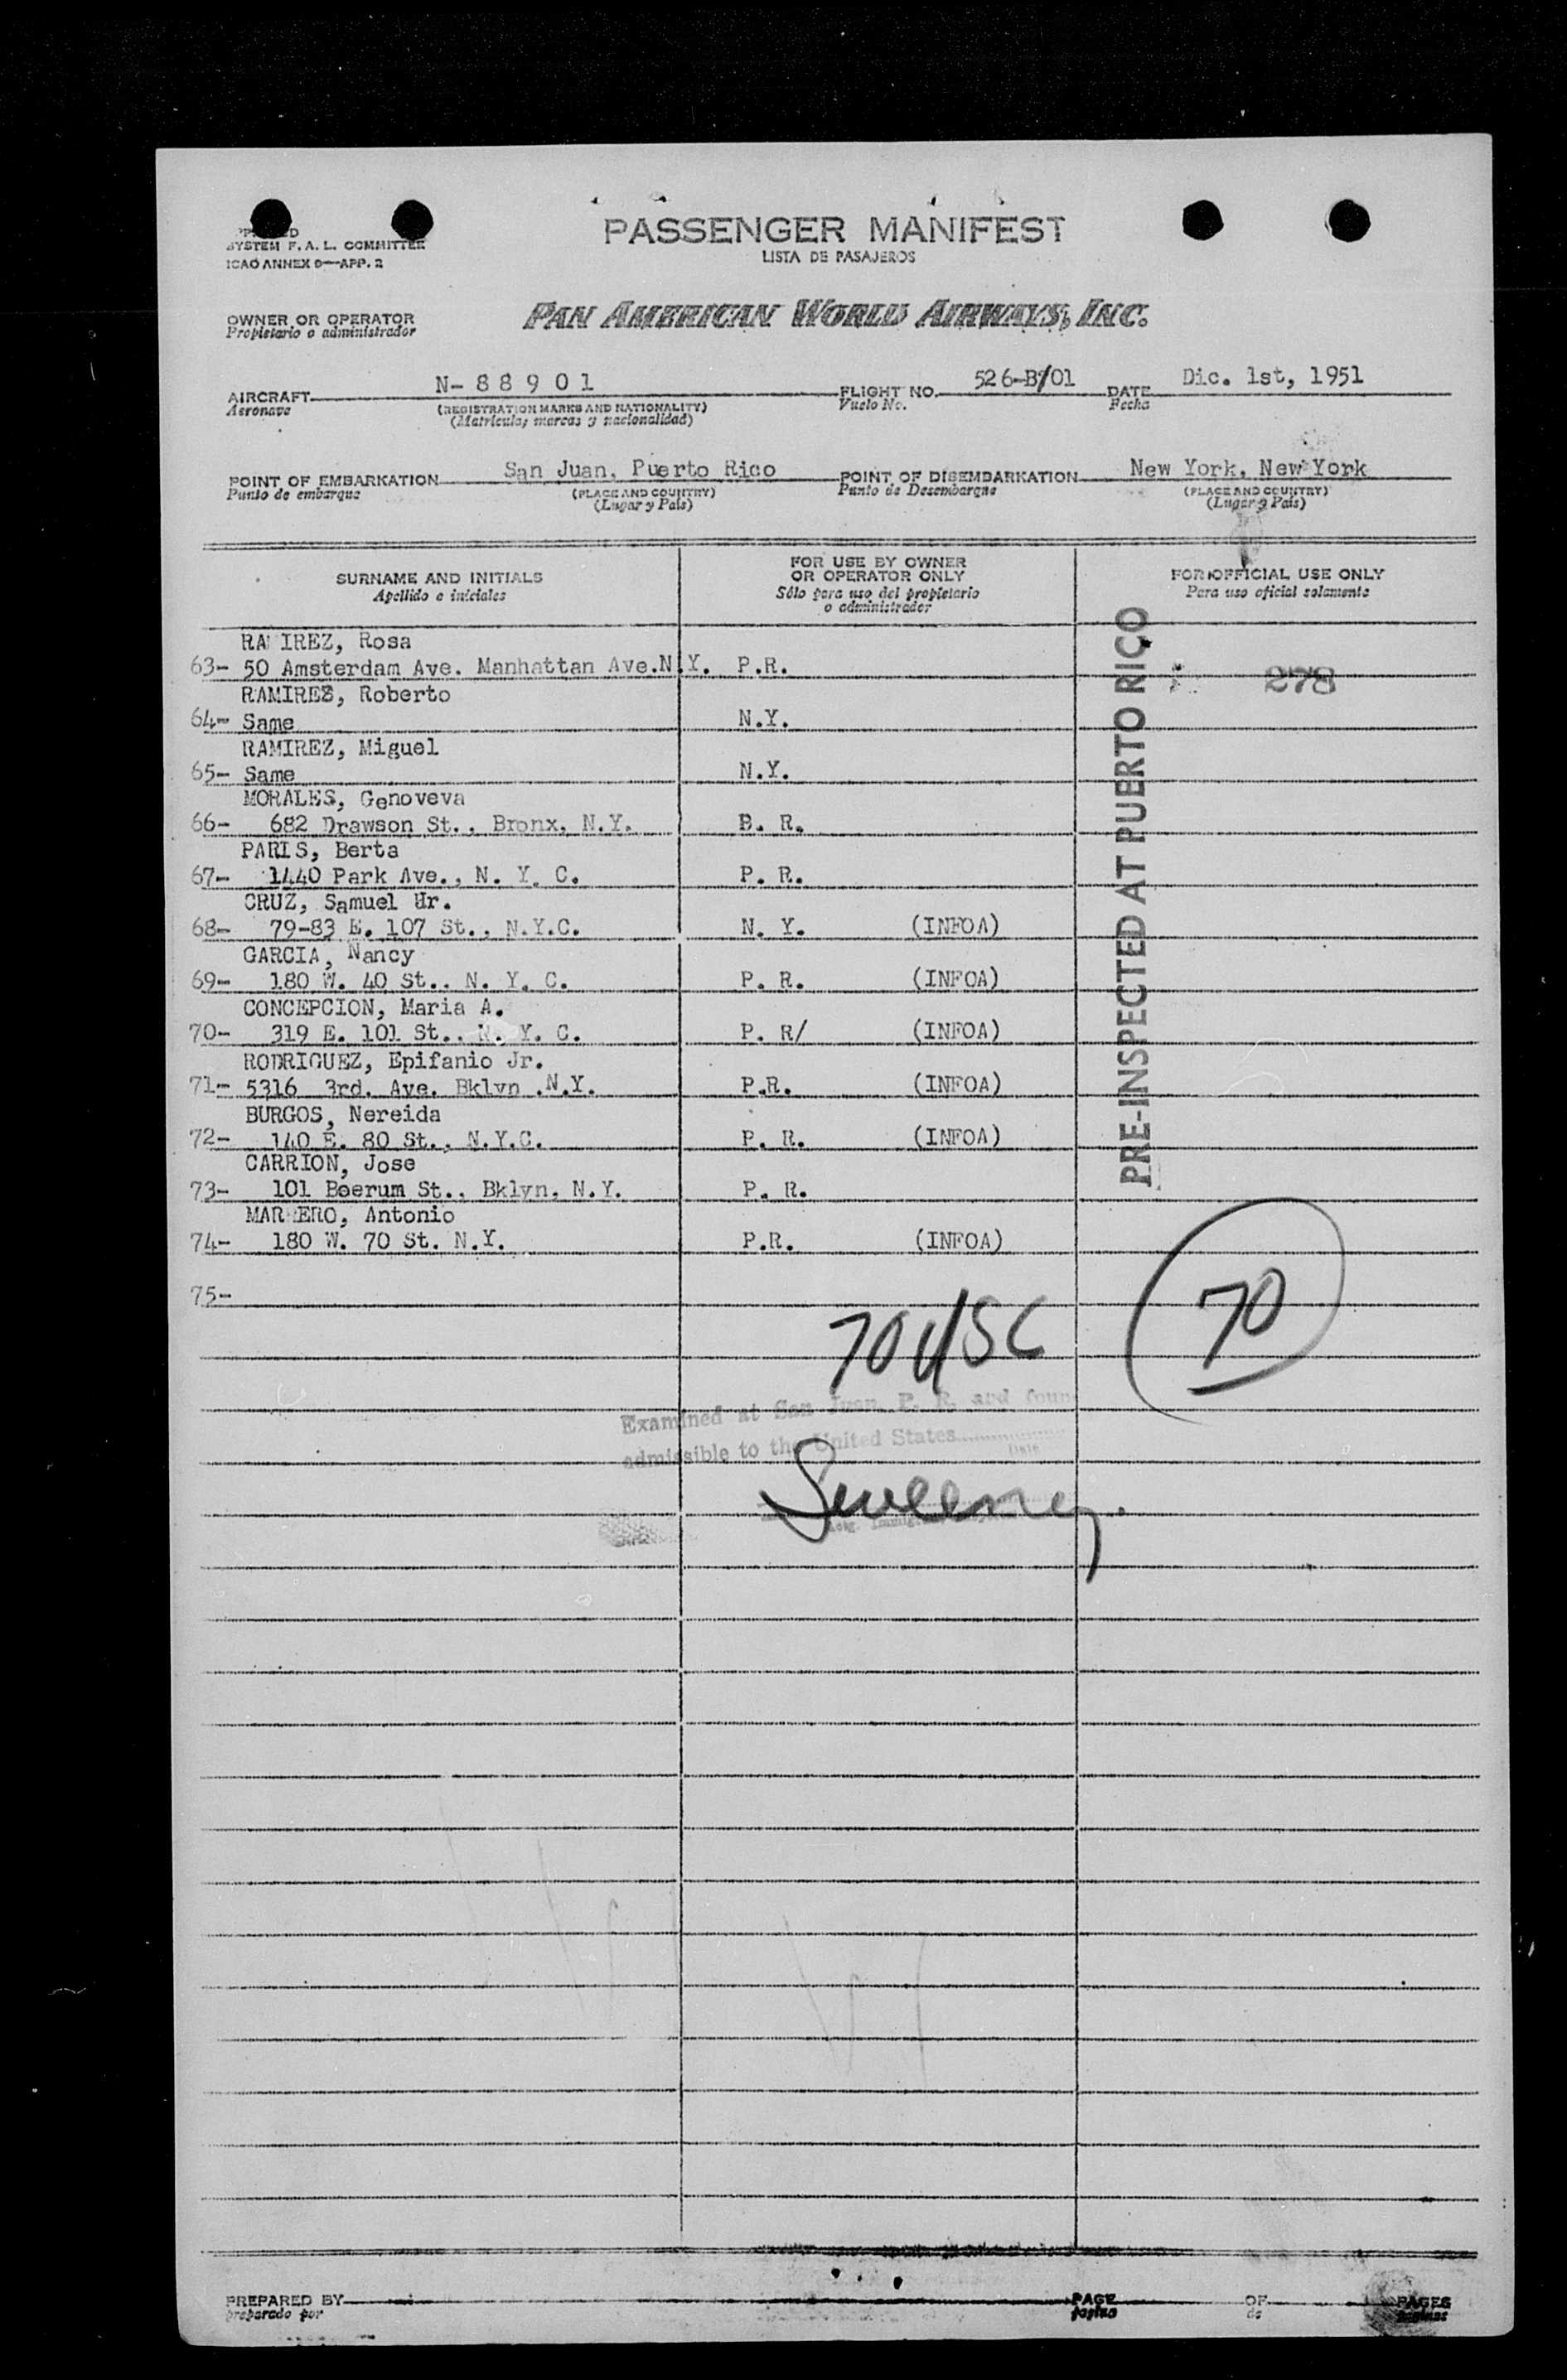 SYSTEM F. A. L. COMMITTEE
ICAO ANNEX 9—APP. 2
PASSENGER MANIFEST
LISTA DE PASAJEROS
OWNER OR OPERATOR
Propietario o administrador
PAN AMERICAN WORLD AIRWAYS, INC.
AIRCRAFT N- 8 8 9 0 1 FLIGHT NO. 526-B/01 DATE Dic. 1st, 1951
Aeronave (REGISTRATION MARKS AND NATIONALITY) Vuelo No. Fecha
(Matricula, marcas y nacionalidad)
POINT OF EMBARKATION San Juan, Puerto Rico POINT OF DISEMBARKATION New York, New York
Punto de embarque (PLACE AND COUNTRY) Punto de Desembarque (PLACE AND COUNTRY)
(Lugar y País) (Lugar y País)
SURNAME AND INITIALS
Apellido e iniciales
FOR USE BY OWNER
OR OPERATOR ONLY
Sólo para uso del propietario
o administrador
FOR OFFICIAL USE ONLY
Para uso oficial solamente
RA IREZ, Rosa
63- 50 Amsterdam Ave. Manhattan Ave.N.Y. P.R.
278
RAMIREZ, Roberto
64- Same N.Y.
RAMIREZ, Miguel
65- Same N.Y.
MORALES, Genoveva
66- 682 Drawson St., Bronx, N.Y. P. R.
PARIS, Berta
67- 1440 Park Ave., N. Y. C. P. R.
CRUZ, Samuel
68- 79-83 E. 107 St., N.Y.C. N. Y. (INFOA)
GARCIA, Nancy
69- 180 W. 40 St., N. Y. C. P. R. (INFOA)
CONCEPCION, Maria A.
70- 319 E. 101 St., N. Y. C. P. R/ (INFOA)
RODRIGUEZ, Epifanio Jr.
71- 5316 3rd. Ave. Bklyn .N.Y. P.R. (INFOA)
BURGOS, Nereida
72- 140 E. 80 St., N.Y.C. P. R. (INFOA)
CARRION, Jose
73- 101 Boerum St., Bklyn, N.Y. P. R.
MARRERO, Antonio
74- 180 W. 70 St. N.Y. P.R. (INFOA)
75-
PRE-INSPECTED AT PUERTO RICO
70 USC
70
Examined at San Juan, P. R. and foun
admissible to the United States
Date
Sweeney.
PREPARED BY PAGE OF PAGES
preparado por pagina de paginas